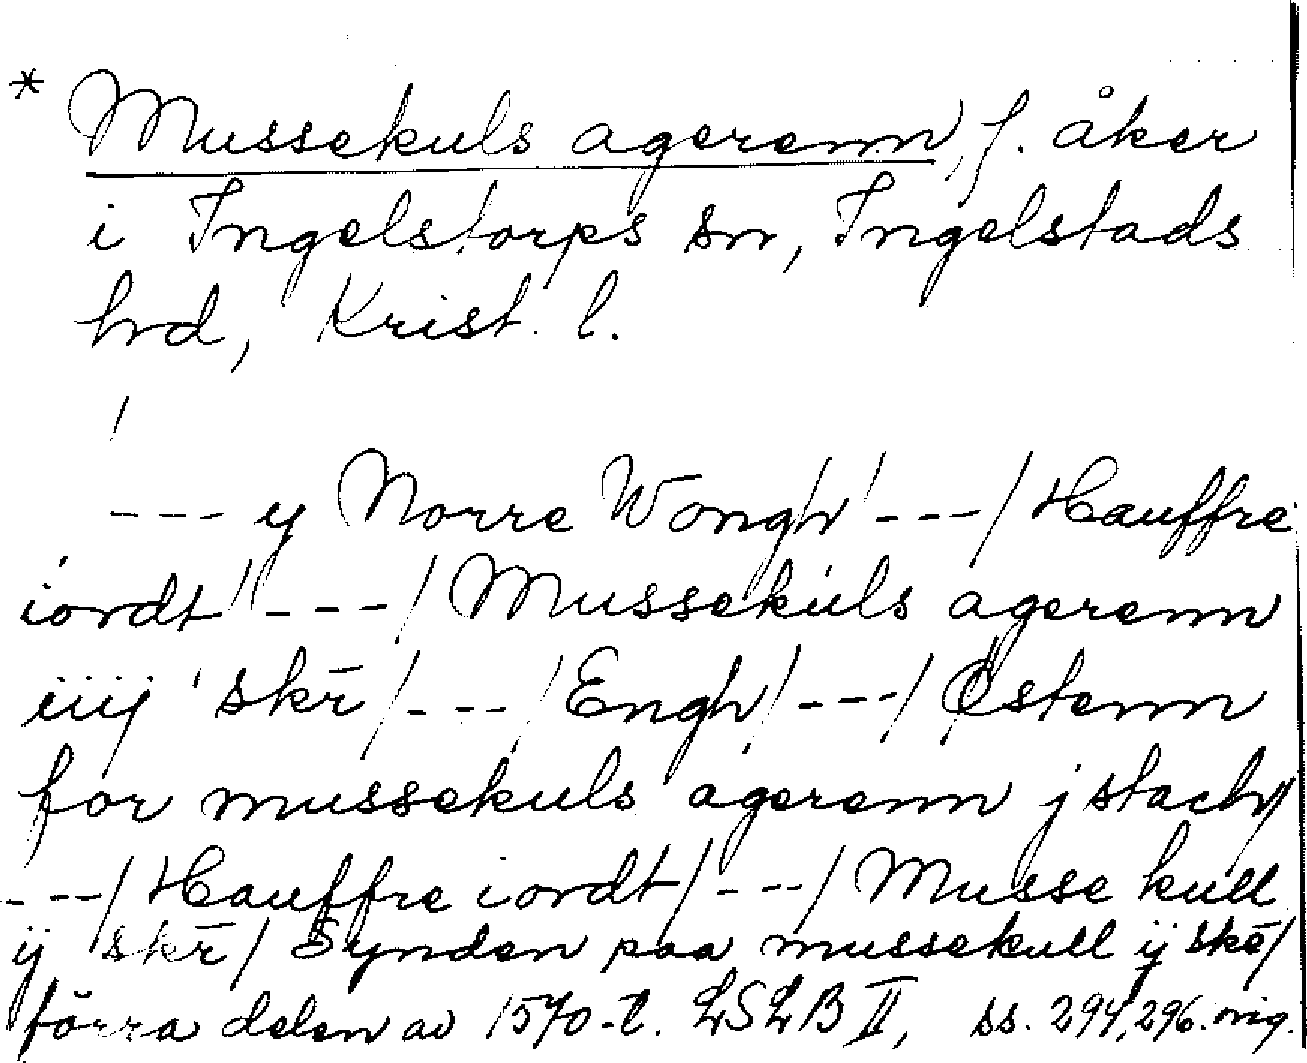 * Mussekuls agerenn, f. åker
i Ingelstorps sn, Ingelstads
hrd, Krist. l.
--- y Norre Wongh --- / Hauffre
iordt / --- / Mussekuls agerenn
iiij skr̄ / --- / Engh / --- / Østenn
for mussekuls agerenn j stach /
--- / Hauffre iordt / --- / Musse kull
ij skr̄ / Synden paa mussekull ij skē /
förra delen av 1570-t. LSLB II, ss. 294, 296. orig.